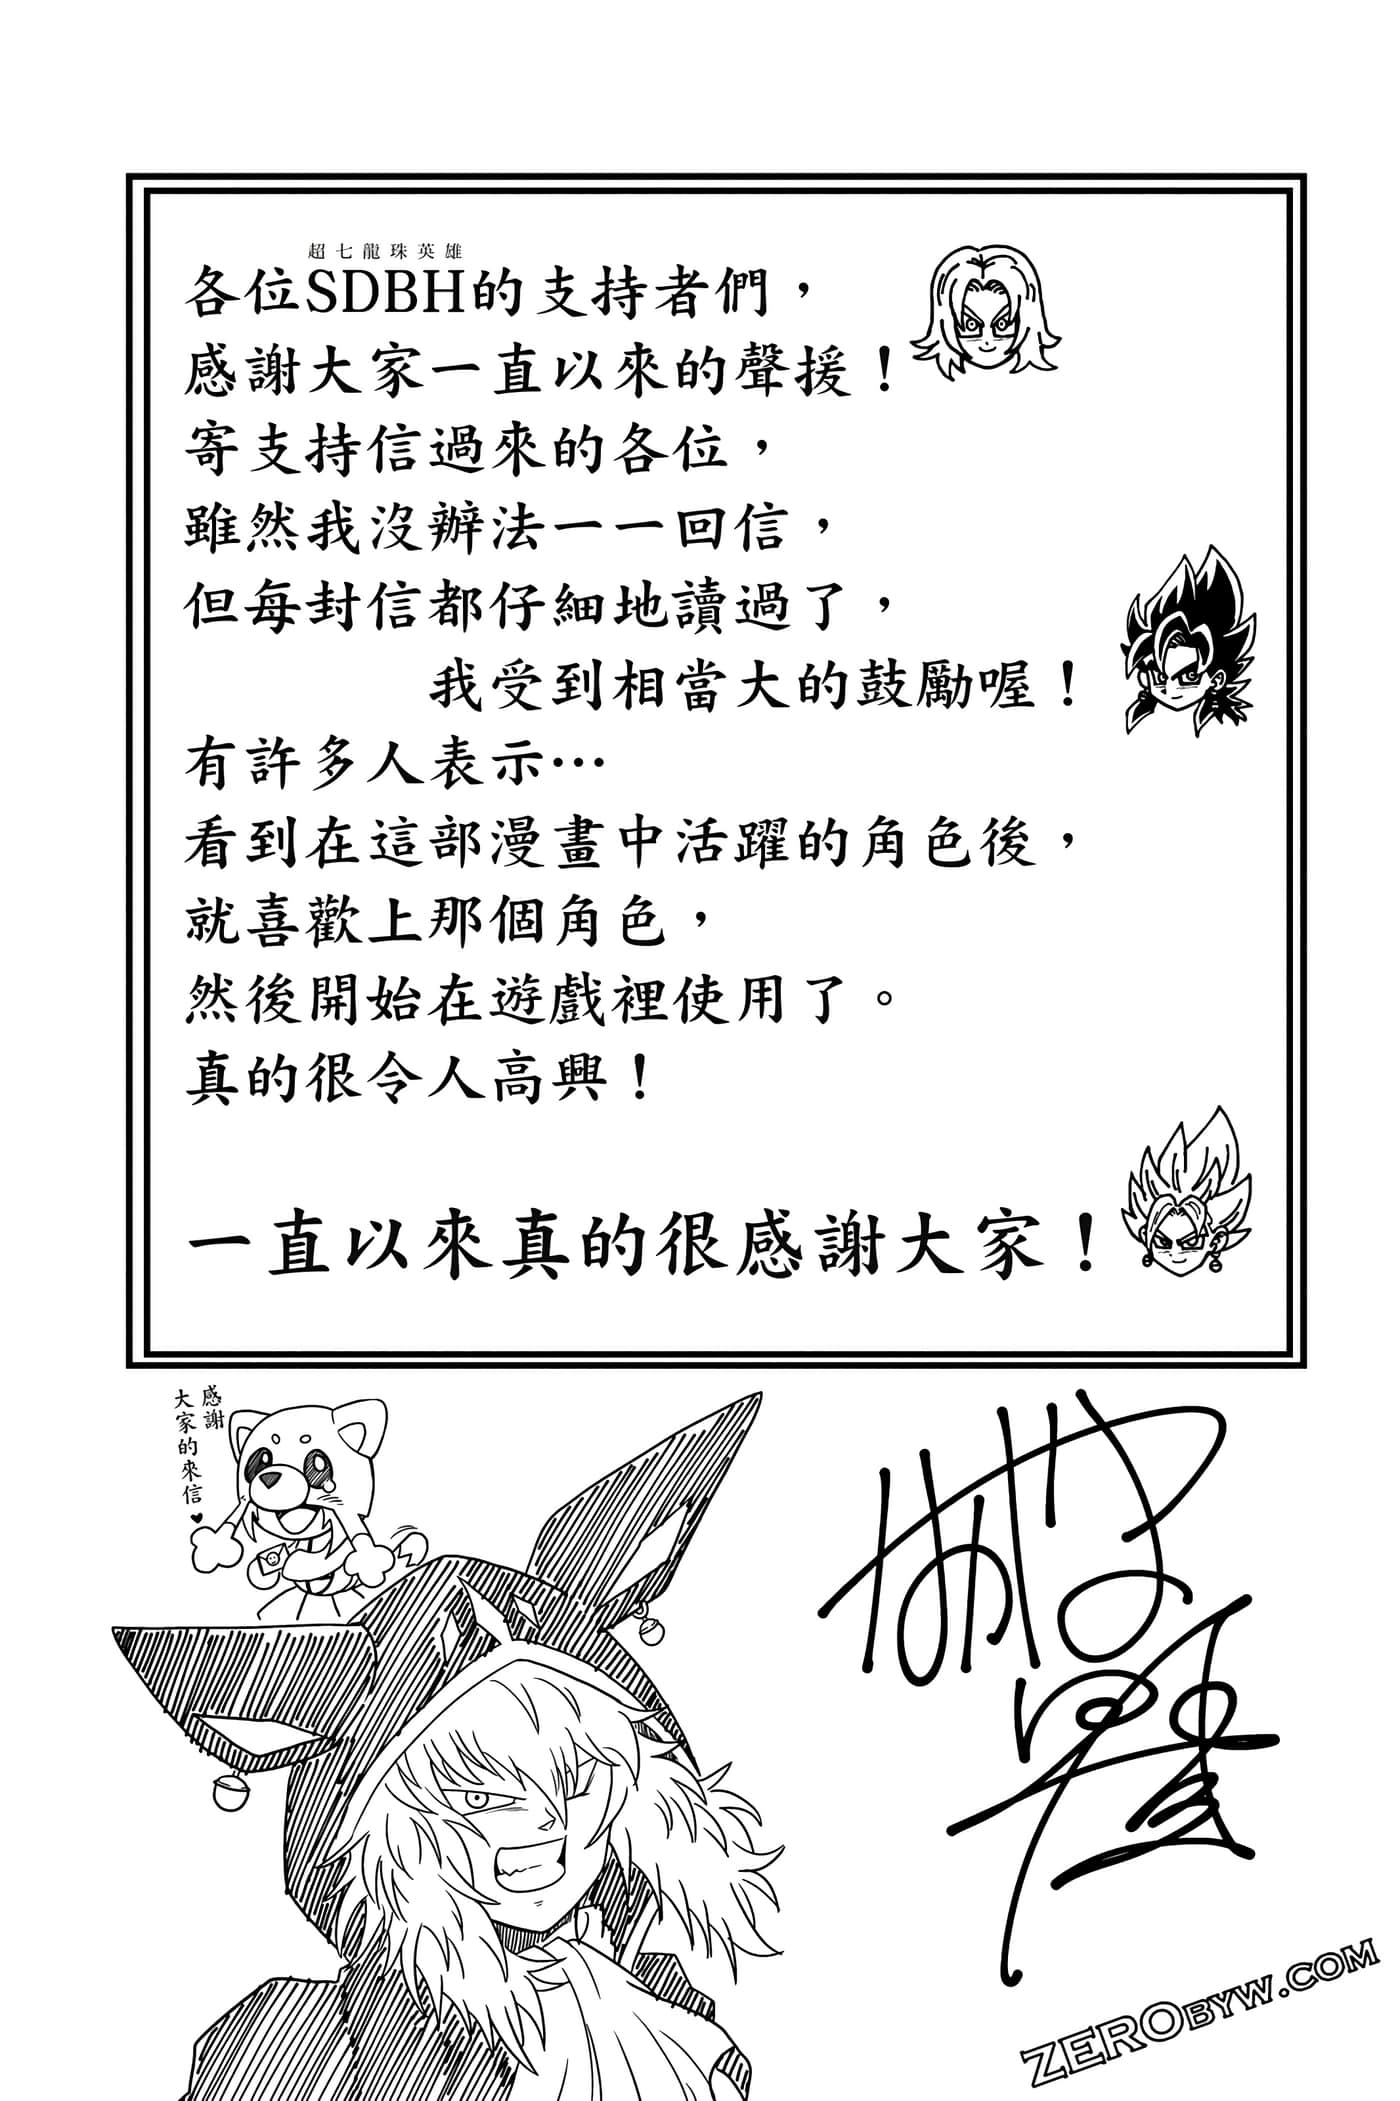 超七龍珠英雄
各位SDBH的支持者們，
感謝大家一直以來的聲援！
寄支持信過來的各位，
雖然我沒辦法一一回信，
但每封信都仔細地讀過了，
我受到相當大的鼓勵喔！
有許多人表示…
看到在這部漫畫中活躍的角色後，
就喜歡上那個角色，
然後開始在遊戲裡使用了。
真的很令人高興！
一直以來真的很感謝大家！
感謝
大家的來信♥
ZEROBYW.COM